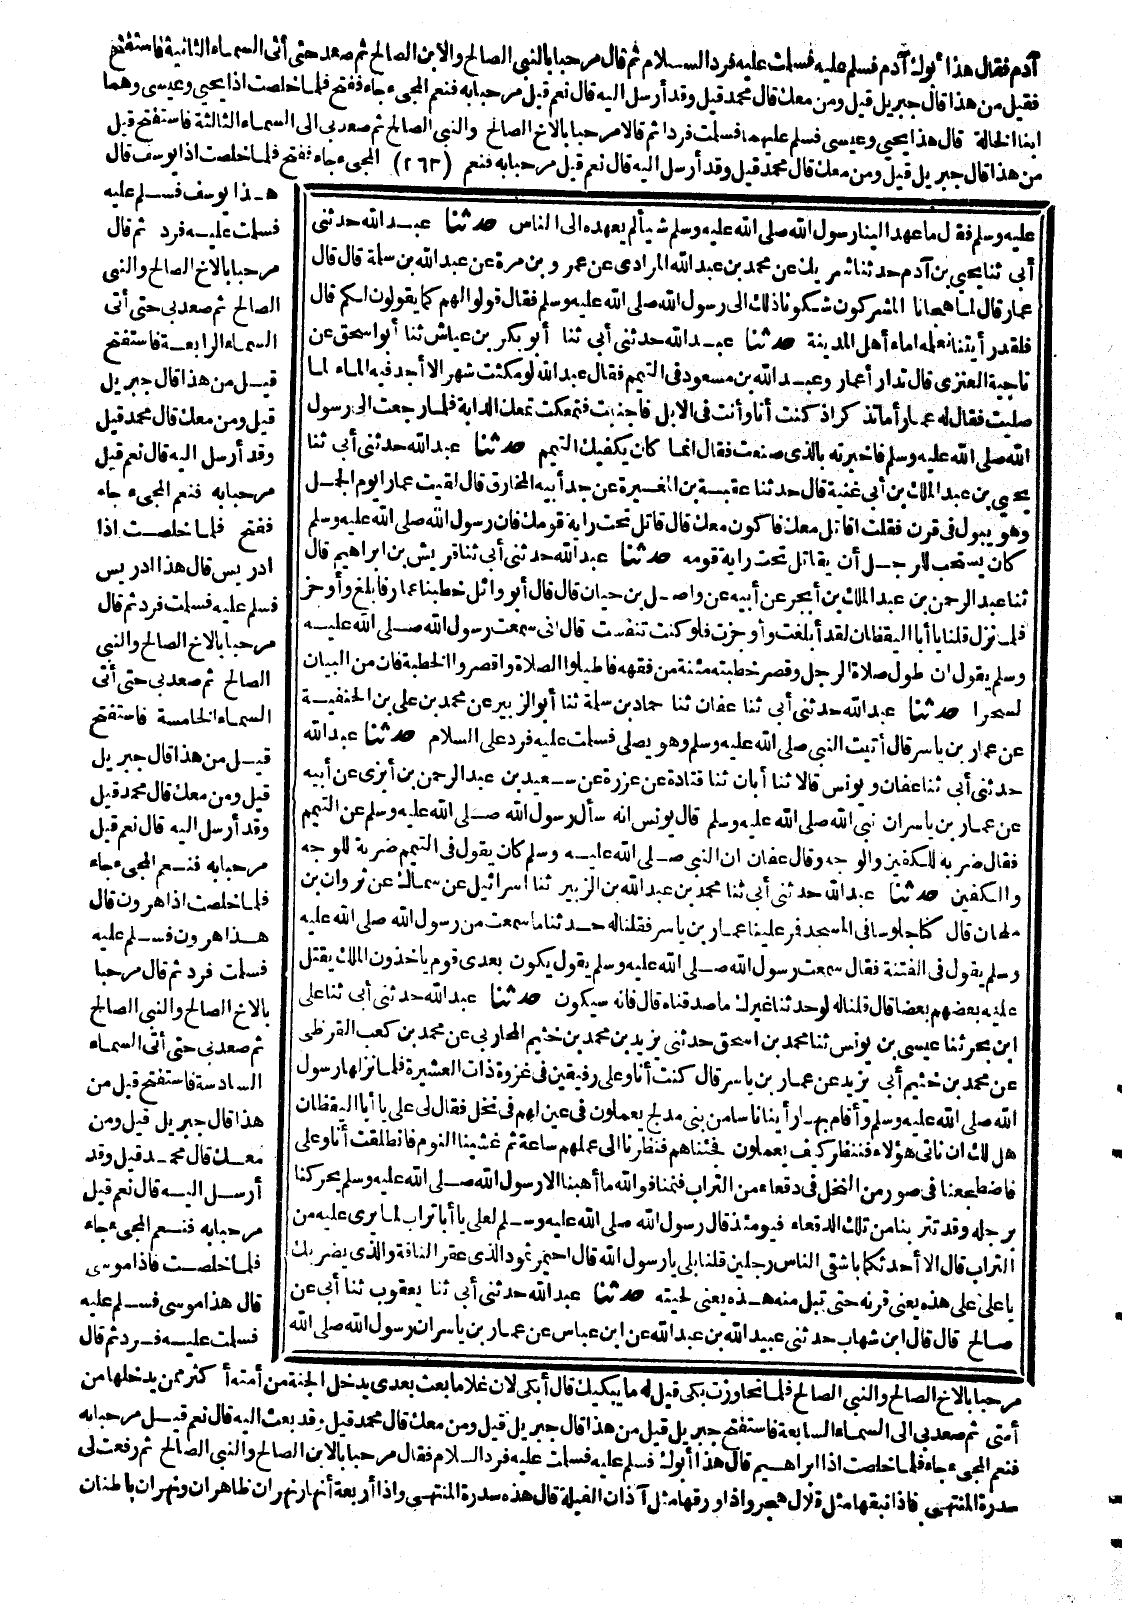 آدم فقال هذا أبوك آدم فسلم عليه فسلمت عليه فرد السلام ثم قال مرحبا بالنبي الصالح والابن الصالح ثم صعد حتى أتى السماء الثانية فاستفتح
فقيل من هذا قال جبريل قيل ومن معك قال محمد قيل وقد أرسل اليه قال نعم قيل مرحبا به فنعم المجيء جاء ففتح فلما خلصت اذا يحيى وعيسى وهما
ابنا الخالة قال هذا يحيى وعيسى فسلم عليهما فسلمت فردا ثم قالا مرحبا بالاخ الصالح والنبي الصالح ثم صعد بي الى السماء الثالثة فاستفتح قيل
من هذا قال جبريل قيل ومن معك قال محمد قيل وقد أرسل اليه قال نعم قيل مرحبا به فنعم (٢٦٣) المجيء جاء ففتح فلما خلصت اذا يوسف قال
هذا يوسف فسلم عليه
فسلمت عليه فرد ثم قال
مرحبا بالاخ الصالح والنبي
الصالح ثم صعد بي حتى أتى
السماء الرابعة فاستفتح
قيل من هذا قال جبريل
قيل ومن معك قال محمد قيل
وقد أرسل اليه قال نعم قيل
مرحبا به فنعم المجيء جاء
ففتح فلما خلصت اذا
ادريس قال هذا ادريس
فسلم عليه فسلمت فرد ثم قال
مرحبا بالاخ الصالح والنبي
الصالح ثم صعد بي حتى أتى
السماء الخامسة فاستفتح
قيل من هذا قال جبريل
قيل ومن معك قال محمد قيل
وقد أرسل اليه قال نعم قيل
مرحبا به فنعم المجيء جاء
فلما خلصت اذا هرون قال
هذا هرون فسلم عليه
فسلمت فرد ثم قال مرحبا
بالاخ الصالح والنبي الصالح
ثم صعد بي حتى أتى السماء
السادسة فاستفتح قيل من
هذا قال جبريل قيل ومن
معك قال محمد قيل وقد
أرسل اليه قال نعم قيل
مرحبا به فنعم المجيء جاء
فلما خلصت فاذا موسى
قال هذا موسى فسلم عليه
فسلمت عليه فرد ثم قال
عليه وسلم فقال ما عهد الينا رسول الله صلى الله عليه وسلم شيأ لم يعهده الى الناس حدثنا عبد الله حدثني
أبي ثنا يحيى بن آدم حدثنا شريك عن محمد بن عبد الله المرادى عن عمرو بن مرة عن عبد الله بن سلمة قال قال
عمار قال لما هجانا المشركون شكونا ذلك الى رسول الله صلى الله عليه وسلم فقال قولوا لهم كما يقولون لكم قال
فلقد رأيتنا نعلمه اماء أهل المدينة حدثنا عبد الله حدثني أبي ثنا أبو بكر بن عياش ثنا أبو اسحق عن
ناجية العنزى قال تدارأ عمار وعبد الله بن مسعود في التيمم فقال عبد الله لو مكثت شهرا لا أجد فيه الماء لما
صليت فقال له عمار أما تذكر اذ كنت أنا وأنت في الابل فاجنبت فتمعكت تمعك الدابة فلما رجعت الى رسول
الله صلى الله عليه وسلم فاخبرته بالذي صنعت فقال انما كان يكفيك التيمم حدثنا عبد الله حدثني أبي ثنا
يحيى بن عبد الملك بن أبي غنية قال حدثنا عقبة بن المغيرة عن جد أبيه المخارق قال لقيت عمارا يوم الجمل
وهو يبول في قرن فقلت اقاتل معك فاكون معك قال قاتل تحت راية قومك فان رسول الله صلى الله عليه وسلم
كان يستحب للرجل أن يقاتل تحت راية قومه حدثنا عبد الله حدثني أبي ثنا قريش بن ابراهيم قال
ثنا عبد الرحمن بن عبد الملك بن أبجر عن أبيه عن واصل بن حيان قال قال أبو وائل خطبنا عمار فأبلغ وأوجز
فلما نزل قلنا يا أبا اليقظان لقد أبلغت وأوجزت فلو كنت تنفست قال اني سمعت رسول الله صلى الله عليه
وسلم يقول ان طول صلاة الرجل وقصر خطبته مئنة من فقهه فاطيلوا الصلاة واقصروا الخطبة فان من البيان
لسحرا حدثنا عبد الله حدثني أبي ثنا عفان ثنا حماد بن سلمة ثنا أبو الزبير عن محمد بن علي بن الحنفية
عن عمار بن ياسر قال أتيت النبي صلى الله عليه وسلم وهو يصلي فسلمت عليه فرد على السلام حدثنا عبد الله
حدثني أبي ثنا عفان ويونس قالا ثنا أبان ثنا قتادة عن عزرة عن سعيد بن عبد الرحمن بن أبزى عن أبيه
عن عمار بن ياسر ان نبي الله صلى الله عليه وسلم قال يونس انه سأل رسول الله صلى الله عليه وسلم عن التيمم
فقال ضربة للكفين والوجه وقال عفان ان النبي صلى الله عليه وسلم كان يقول في التيمم ضربة للوجه
والكفين حدثنا عبد الله حدثني أبي ثنا محمد بن عبد الله بن الزبير ثنا اسرائيل عن سماك عن ثروان بن
ملحان قال كنا جلوسا في المسجد فمر علينا عمار بن ياسر فقلنا له حدثنا ما سمعت من رسول الله صلى الله عليه
وسلم يقول في الفتنة فقال سمعت رسول الله صلى الله عليه وسلم يقول يكون بعدى قوم يأخذون الملك يقتل
عليه بعضهم بعضا قال قلنا له لو حدثنا غيرك ما صدقناه قال فانه سيكون حدثنا عبد الله حدثني أبي ثنا علي
ابن بحر ثنا عيسى بن يونس ثنا محمد بن اسحق حدثني يزيد بن محمد بن خثيم المحاربي عن محمد بن كعب القرظى
عن محمد بن خثيم أبي يزيد عن عمار بن ياسر قال كنت أنا وعلى رفيقين في غزوة ذات العشيرة فلما نزلها رسول
الله صلى الله عليه وسلم وأقام بها رأينا ناسا من بني مدلج يعملون في عين لهم في نخل فقال لى على يا أبا اليقظان
هل لك ان نأتى هؤلاء فننظر كيف يعملون فجئناهم فنظرنا الى عملهم ساعة ثم غشينا النوم فانطلقت أنا وعلى
فاضطجعنا في صور من النخل في دقعاء من التراب فنمنا فوالله ما أهبنا الا رسول الله صلى الله عليه وسلم يحركنا
برجله وقد تتربنا من تلك الدقعاء فيومئذ قال رسول الله صلى الله عليه وسلم لعلى يا أبا تراب لما يرى عليه من
التراب قال الا أحدثكما باشقى الناس رجلين قلنا بلى يا رسول الله قال احيمر ثمود الذى عقر الناقة والذى يضربك
يا على على هذه يعنى قرنه حتى تبل منه هذه يعنى لحيته حدثنا عبد الله حدثني أبي ثنا يعقوب ثنا أبي عن
صالح قال قال ابن شهاب حدثني عبيد الله بن عبد الله عن ابن عباس عن عمار بن ياسر ان رسول الله صلى الله
مرحبا بالاخ الصالح والنبي الصالح فلما تجاوزت بكى قيل له ما يبكيك قال أبكى لان غلاما بعث بعدى يدخل الجنة من أمته أكثر ممن يدخلها من
أمتى ثم صعد بي الى السماء السابعة فاستفتح جبريل قيل من هذا قال جبريل قيل ومن معك قال محمد قيل وقد بعث اليه قال نعم قيل مرحبا به
فنعم المجيء جاء فلما خلصت اذا ابراهيم قال هذا أبوك فسلم عليه فسلمت عليه فرد السلام فقال مرحبا بالابن الصالح والنبي الصالح ثم رفعت لى
سدرة المنتهى فاذا نبقها مثل قلال هجر واذا ورقها مثل آذان الفيلة قال هذه سدرة المنتهى واذا أربعة أنهار نهران ظاهران ونهران باطنان